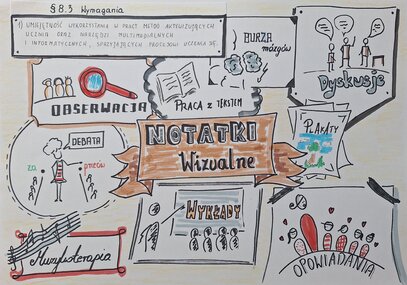 § 8.3 Wymagania
1) UMIEJĘTNOŚĆ WYKORZYSTANIA W PRACY METOD AKTYWIZUJĄCYCH
UCZNIA ORAZ NARZĘDZI MULTIMEDIALNYCH
I INFORMATYCZNYCH, SPRZYJAJĄCYCH PROCESOWI UCZENIA SIĘ.
BURZA
mózgów
Dyskusje
OBSERWACJA
PRACA Z TEKSTEM
NOTATKI
Wizualne
PLAKATY
DEBATA
za
przeciw
WYKŁADY
Muzykoterapia
OPOWIADANIA